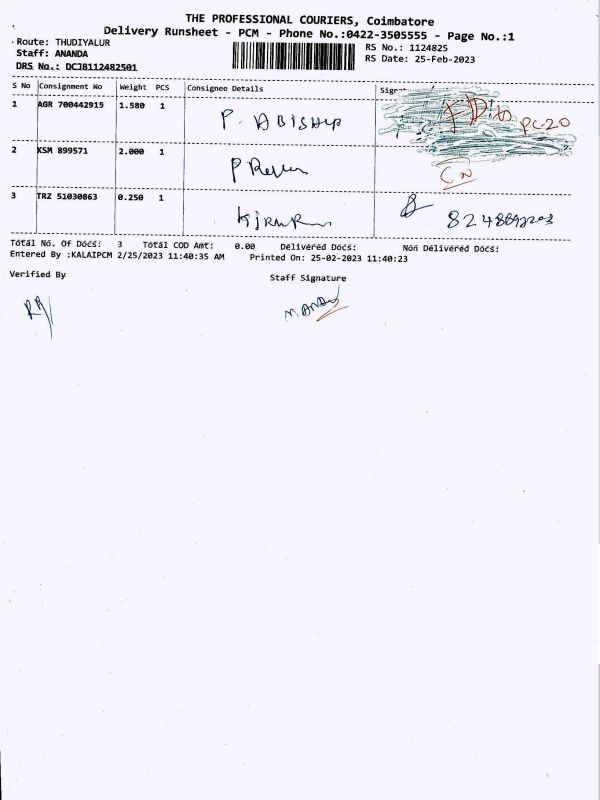 THE PROFESSIONAL COURIERS, Coimbatore
Delivery Runsheet - PCM - Phone No.:0422-3505555 - Page No.:1
Route: THUDIYALUR
RS No.: 1124825
Staff: ANANDA
RS Date: 25-Feb-2023
DRS No.: DCJ8112482501
S No Consignment No Weight PCS Consignee Details
1 AGR 700442915 1.580 1 P. ABISHEP
2 KSM 899571 2.000 1
3 TRZ 51030863 0.250 1
Total No. Of Docs: 3 Total COD Amt: 0.00 Delivered Docs: Non Delivered Docs:
Entered By :KALAIPCM 2/25/2023 11:40:35 AM Printed On: 25-02-2023 11:40:23
Verified By Staff Signature